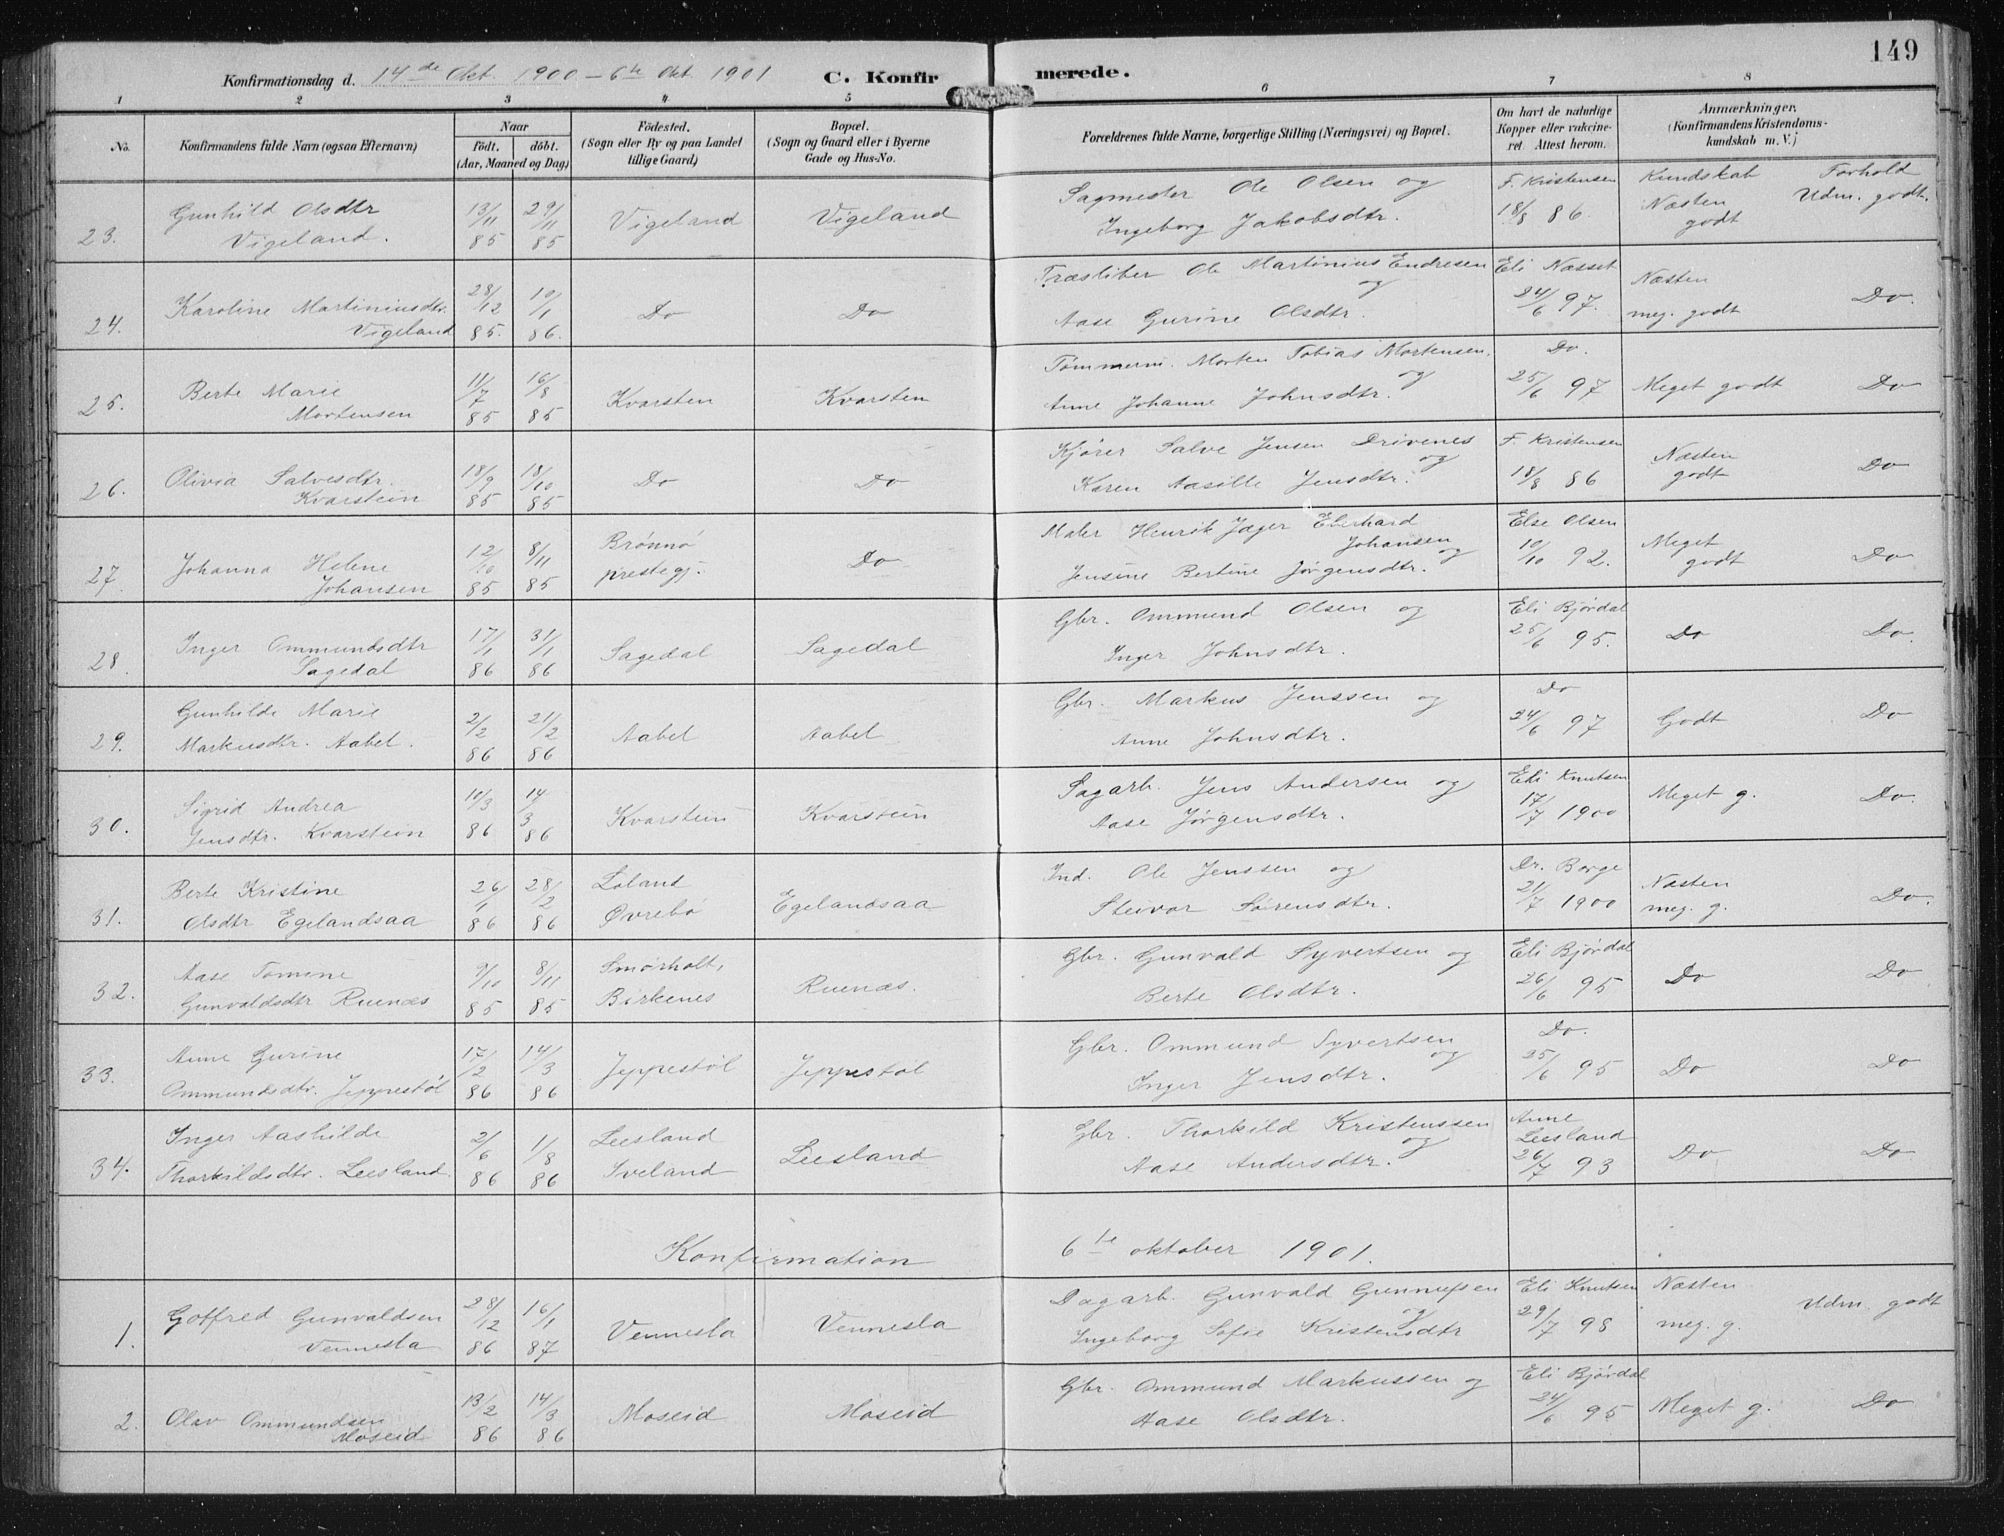 149
Konfirmationsdag d. 14de Okt. 1900 – 6te Okt. 1901 C. Konfirmerede.
1 2 3 4 5 6 7 8
No. Konfirmandens fulde Navn (ogsaa Efternavn) Naar Födt. döbt. (Aar, Maaned og Dag) Födested. (Sogn eller By og paa Landet tillige Gaard) Bopæl. (Sogn og Gaard eller i Byerne Gade og Hus-No. Forældrenes fulde Navne, borgerlige Stilling (Næringsvei) og Bopæl. Om havt de naturlige Kopper eller vakcineret. Attest herom. Anmærkninger. (Konfirmandens Kristendomskundskab m. V.)
Kundskab Forhold
23. Gunhild Olsdtr Vigeland. 13/11 85 29/11 85 Vigeland Vigeland Sagmester Ole Olsen og Ingeborg Jakobsdtr. F. Kristensen 18/8 86. Næsten godt Udm. godt.
24. Karoline Martiniusdtr. Vigeland 28/12 85. 10/1 86. Do Do Træsliber Ole Martinius Endresen og Aase Gurine Olsdtr. Eli Næsset 24/6 97. Næsten meg. godt Do.
25. Berte Marie Mortensen 11/7 85 16/8 85 Kvarsten Kvarsten Tömmerm. Morten Tobias Mortensen. og Anne Johanne Johnsdtr. Do. 25/6 97 Meget godt Do
26. Olivia Salvesdtr. Kvarstein 18/9 85 18/10 85 Do Do Kjører Salve Jensen Drivenes og Karen Aasille Jensdtr. F. Kristensen 18/8 86 Næsten godt Do
27. Johanna Helene Johansen 12/10 85 8/11 85 Brønnø prestegj. Do Maler Henrik Jæger Eberhard Johansen og Jensine Bertine Jørgensdtr. Else Olsen 10/10 92. Meget godt Do
28. Inger Ommundsdtr Sagedal 17/1 86 31/1 86 Sagedal Sagedal Gbr. Ommund Olsen og Inger Johnsdtr. Eli Bjørdal 25/6 95. Do Do.
29. Gunhilde Marie Markusdtr. Aabel. 2/2 86 21/2 86 Aabel Aabel Gbr. Markus Jenssen og Anne Johnsdtr. Do 24/6 97 Godt Do
30. Sigrid Andrea Jensdtr. Kvarstein 10/3 86 14/3 86 Kvarstein Kvarstein Sagarb. Jens Andersen og Aase Jørgensdtr. Eli Knutsen 17/7 1900 Meget g. Do.
31. Berte Kristine Olsdtr Egelandsaa 26/1 86 28/2 86 Loland Øvrebø Egelandsaa Ind. Ole Jenssen og Steivor Sørensdtr. Dr. Borge 21/7 1900 Næsten meg. g. Do.
32. Aase Tomine Gunvaldsdtr Ruenæs 9/10 85 8/11 85 Smørholt, Birkenes Ruenæs. Gbr. Gunvald Syvertsen og Berte Olsdtr. Eli Bjørdal 26/6 95 Do Do
33. Anne Gurine Ommundsdtr. Jeppestøl 17/2 86 14/3 86 Jeppestøl Jeppestøl Gbr. Ommund Syvertsen og Inger Jensdtr. Do. 25/6 95 Do Do
34. Inger Aashilde Thorkildsdtr. Leesland 2/6 86 1/8 86 Leesland Iveland Leesland Gbr. Thorkild Kristenssen og Aase Andersdtr. Anne Leesland 26/7 93 Do Do
Konfirmation 6te oktober 1901.
1. Gotfred Gunvaldsen Vennesla 28/12 86 16/1 87 Vennesla Vennesla Dagarb. Gunvald Gunnufsen og Ingeborg Sofie Kristensdtr Eli Knutsen 29/7 98 Næsten meg. g. Udm. godt
2. Olav Ommundsen Moseid 13/2 86 14/3 86 Moseid Moseid Gbr. Ommund Markussen og Aase Olsdtr. Eli Bjørdal 24/6 95 Meget g. Do